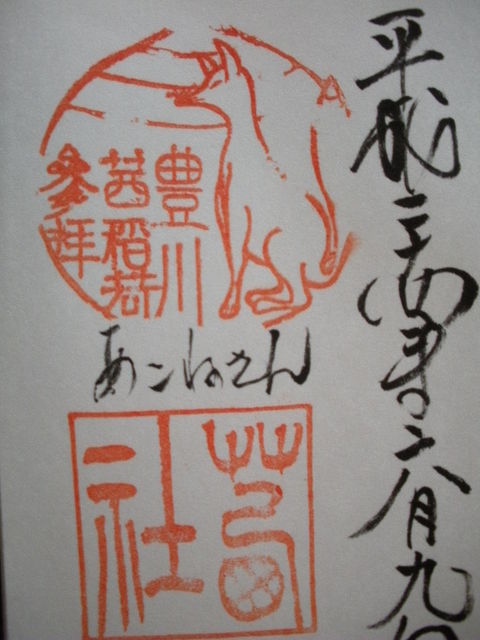 平成二十四年八月九日
豊川
茜稲荷
参拝
あこねさん
茜社